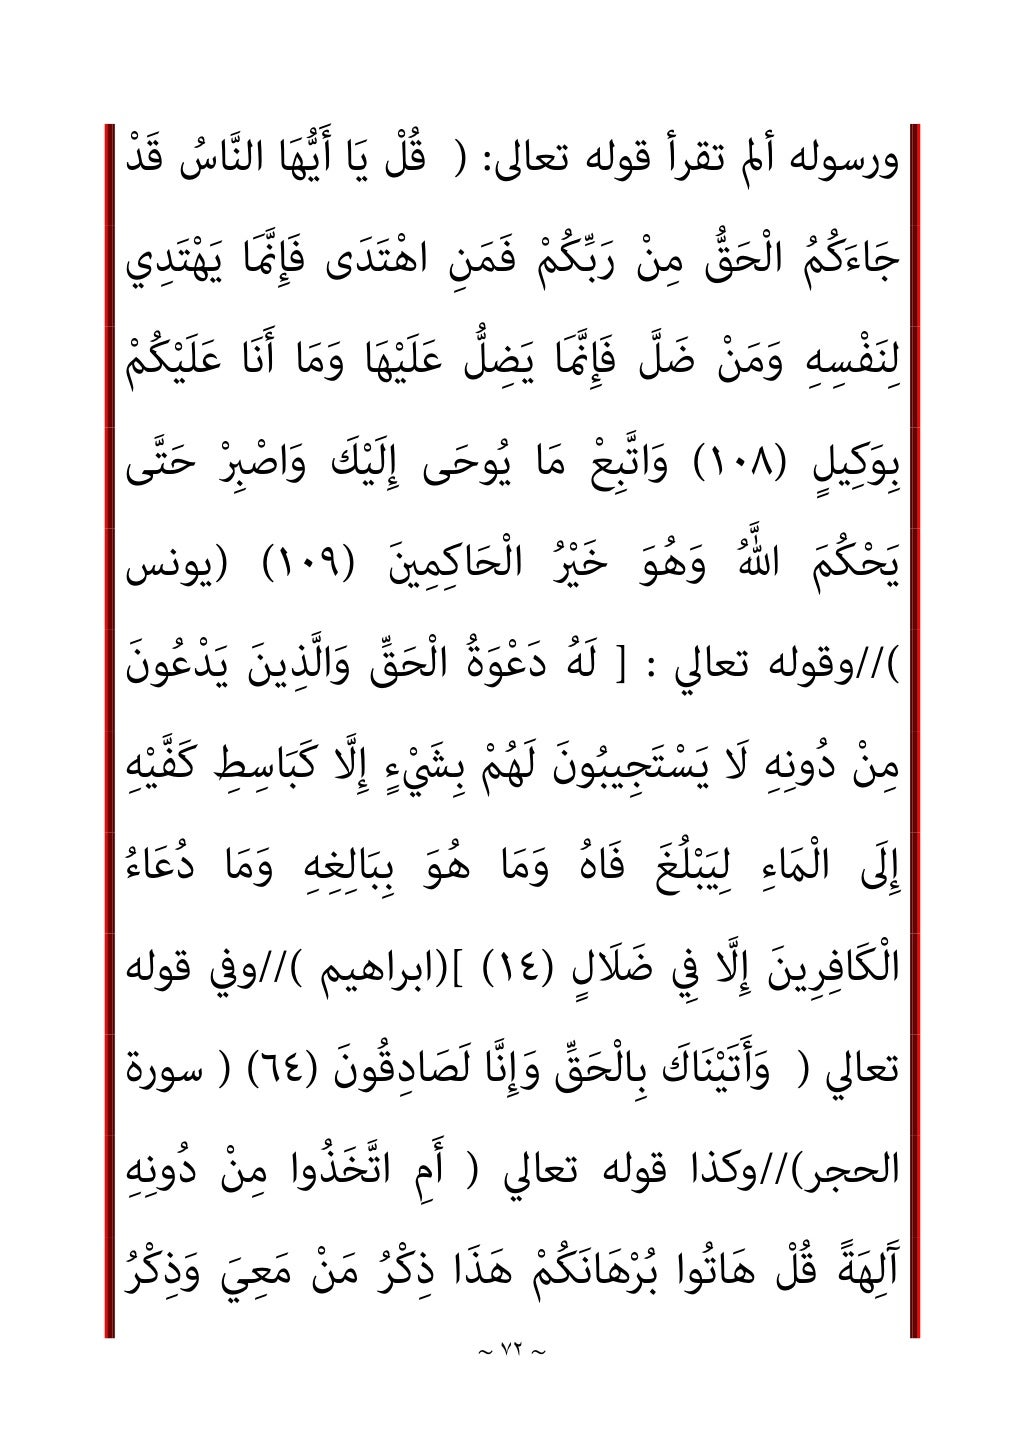 ورسوله ألم تقرأ قوله تعالى: ( قُلْ يَا أَيُّهَا النَّاسُ قَدْ
جَاءَكُمُ الْحَقُّ مِنْ رَبِّكُمْ فَمَنِ اهْتَدَى فَإِنَّمَا يَهْتَدِي
لِنَفْسِهِ وَمَنْ ضَلَّ فَإِنَّمَا يَضِلُّ عَلَيْهَا وَمَا أَنَا عَلَيْكُمْ
بِوَكِيلٍ (١٠٨) وَاتَّبِعْ مَا يُوحَى إِلَيْكَ وَاصْبِرْ حَتَّى
يَحْكُمَ اللَّهُ وَهُوَ خَيْرُ الْحَاكِمِينَ (١٠٩) (يونس
)//وقوله تعالي : [ لَهُ دَعْوَةُ الْحَقِّ وَالَّذِينَ يَدْعُونَ
مِنْ دُونِهِ لَا يَسْتَجِيبُونَ لَهُمْ بِشَيْءٍ إِلَّا كَبَاسِطِ كَفَّيْهِ
إِلَى الْمَاءِ لِيَبْلُغَ فَاهُ وَمَا هُوَ بِبَالِغِهِ وَمَا دُعَاءُ
الْكَافِرِينَ إِلَّا فِي ضَلَالٍ (١٤) ](ابراهيم )//وفي قوله
تعالي ( وَأَتَيْنَاكَ بِالْحَقِّ وَإِنَّا لَصَادِقُونَ (٦٤) ( سورة
الحجر)//وكذا قوله تعالي ( أَمِ اتَّخَذُوا مِنْ دُونِهِ
آَلِهَةً قُلْ هَاتُوا بُرْهَانَكُمْ هَذَا ذِكْرُ مَنْ مَعِيَ وَذِكْرُ
~ ٧٢ ~